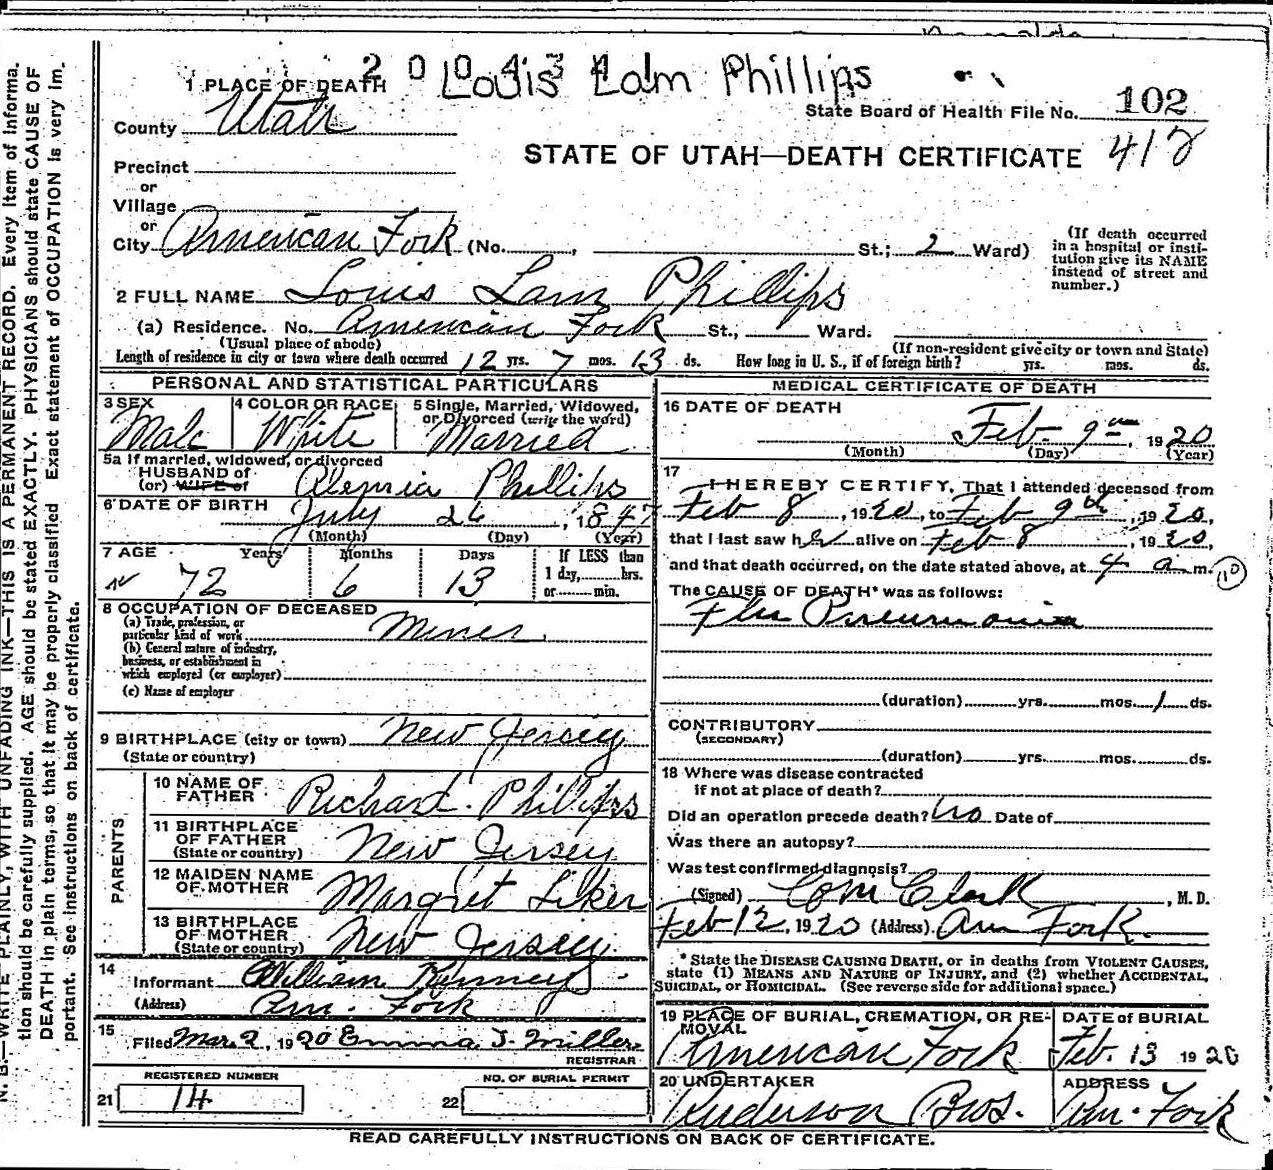 N. B.—WRITE PLAINLY, WITH UNFADING INK—THIS IS A PERMANENT RECORD. Every item of informa-
tion should be carefully supplied. AGE should be stated EXACTLY. PHYSICIANS should state CAUSE OF
DEATH in plain terms, so that it may be properly classified. Exact statement of OCCUPATION is very im-
portant. See instructions on back of certificate.
Louis Lam Phillips
1 PLACE OF DEATH
State Board of Health File No. 102
County Utah
STATE OF UTAH—DEATH CERTIFICATE
Precinct
or
Village
or
City American Fork (No. , St.; 2 Ward)
(If death occurred
in a hospital or insti-
tution give its NAME
instead of street and
number.)
2 FULL NAME Louis Lam Phillips
(a) Residence. No. American Fork St., Ward.
(Usual place of abode)
(If non-resident give city or town and State)
Length of residence in city or town where death occurred 12 yrs. 7 mos. 13 ds. How long in U. S., if of foreign birth? yrs. mos. ds.
PERSONAL AND STATISTICAL PARTICULARS
3 SEX
Male
4 COLOR OR RACE
White
5 Single, Married, Widowed,
or Divorced (write the word)
Married
5a If married, widowed, or divorced
HUSBAND of
(or) WIFE of Phillips
6 DATE OF BIRTH July 26, 1847
(Month) (Day) (Year)
7 AGE Years Months Days If LESS than
72 6 13 1 day, hrs.
or min.
8 OCCUPATION OF DECEASED
(a) Trade, profession, or
particular kind of work Miner
(b) General nature of industry,
business, or establishment in
which employed (or employer)
(c) Name of employer
9 BIRTHPLACE (city or town) New Jersey
(State or country)
PARENTS
10 NAME OF
FATHER Richard Phillips
11 BIRTHPLACE
OF FATHER
(State or country) New Jersey
12 MAIDEN NAME
OF MOTHER Margret Liker
13 BIRTHPLACE
OF MOTHER
(State or country) New Jersey
14
Informant William
(Address) Am. Fork
15
Filed Mar. 2, 1920 Emma J. Miller
REGISTRAR
REGISTERED NUMBER
21 14
NO. OF BURIAL PERMIT
22
MEDICAL CERTIFICATE OF DEATH
16 DATE OF DEATH
Feb. 9, 1920
(Month) (Day) (Year)
17
I HEREBY CERTIFY, That I attended deceased from
Feb 8, 1920, to Feb 9th, 1920,
that I last saw h alive on Feb 8, 1920,
and that death occurred, on the date stated above, at 4 a m. 10
The CAUSE OF DEATH* was as follows:
Flu Pneumonia
(duration) yrs. mos. 1 ds.
CONTRIBUTORY
(SECONDARY)
(duration) yrs. mos. ds.
18 Where was disease contracted
if not at place of death?
Did an operation precede death? No Date of
Was there an autopsy?
Was test confirmed diagnosis?
(Signed) Clark, M. D.
Feb 12, 1920 (Address) Am Fork.
* State the DISEASE CAUSING DEATH, or in deaths from VIOLENT CAUSES,
state (1) MEANS AND NATURE OF INJURY, and (2) whether ACCIDENTAL,
SUICIDAL, or HOMICIDAL. (See reverse side for additional space.)
19 PLACE OF BURIAL, CREMATION, OR RE-
MOVAL
American Fork
DATE of BURIAL
Feb. 13 1920
20 UNDERTAKER
Anderson Bros.
ADDRESS
Am. Fork
READ CAREFULLY INSTRUCTIONS ON BACK OF CERTIFICATE.